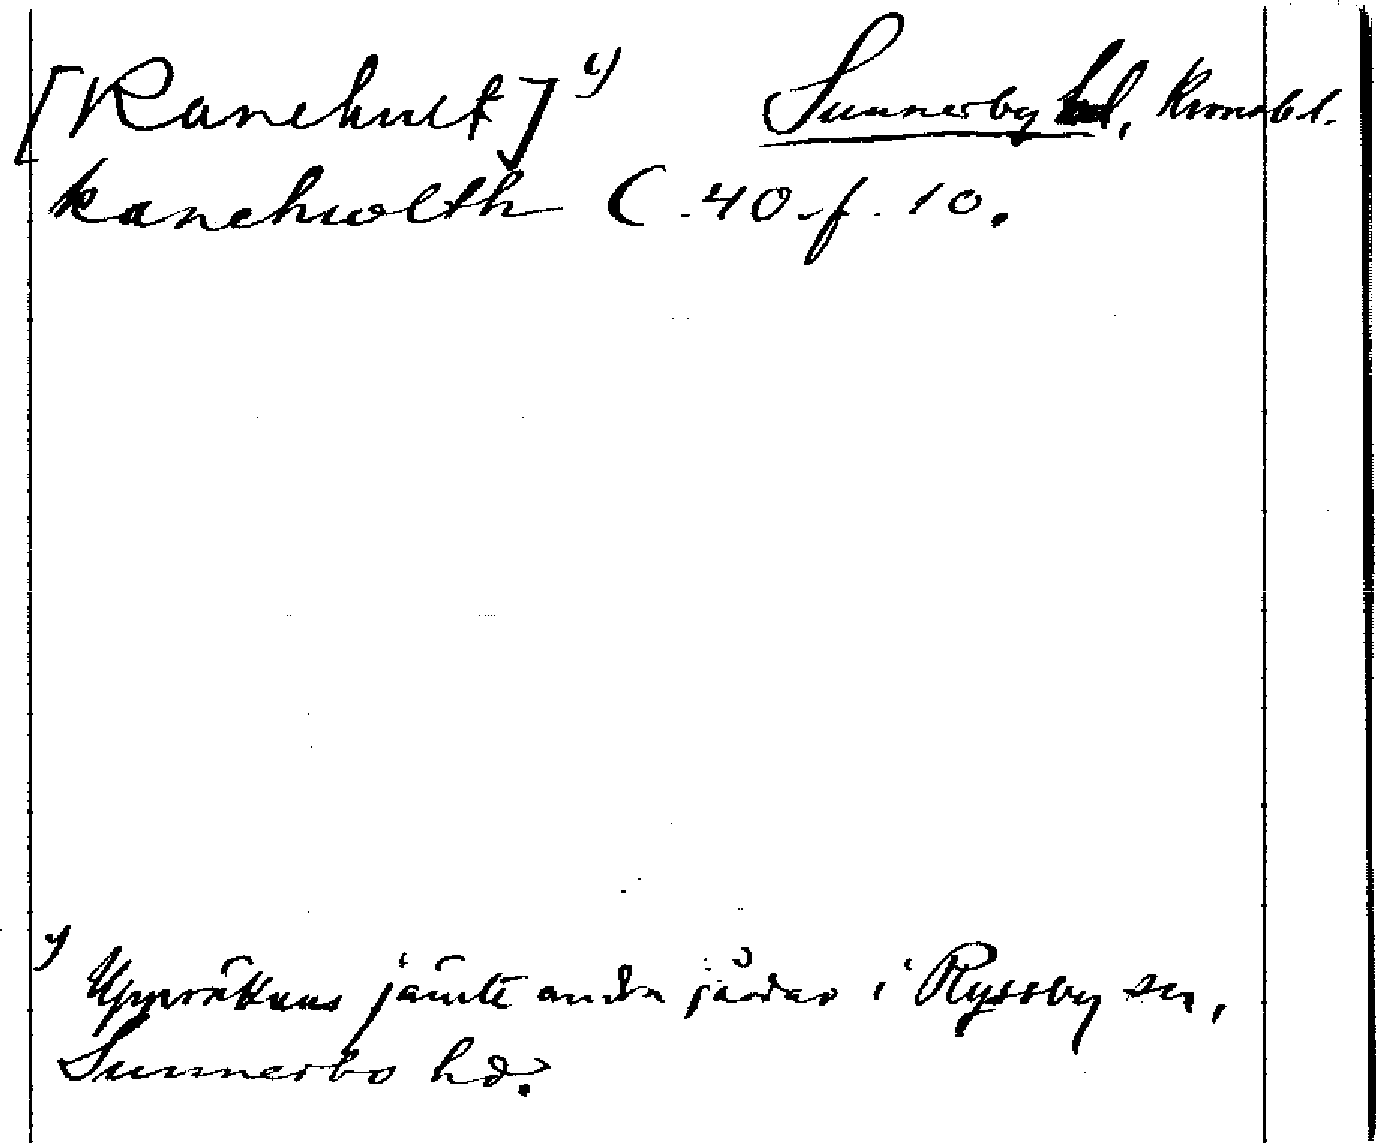 [Kanehult] 1) Sunnerby hd, Kronobl.
kanehwolth C. 40 f. 10.
1) Uppräknas jämte andra jårdar i Ryssby sn,
Sunnerbo hd.